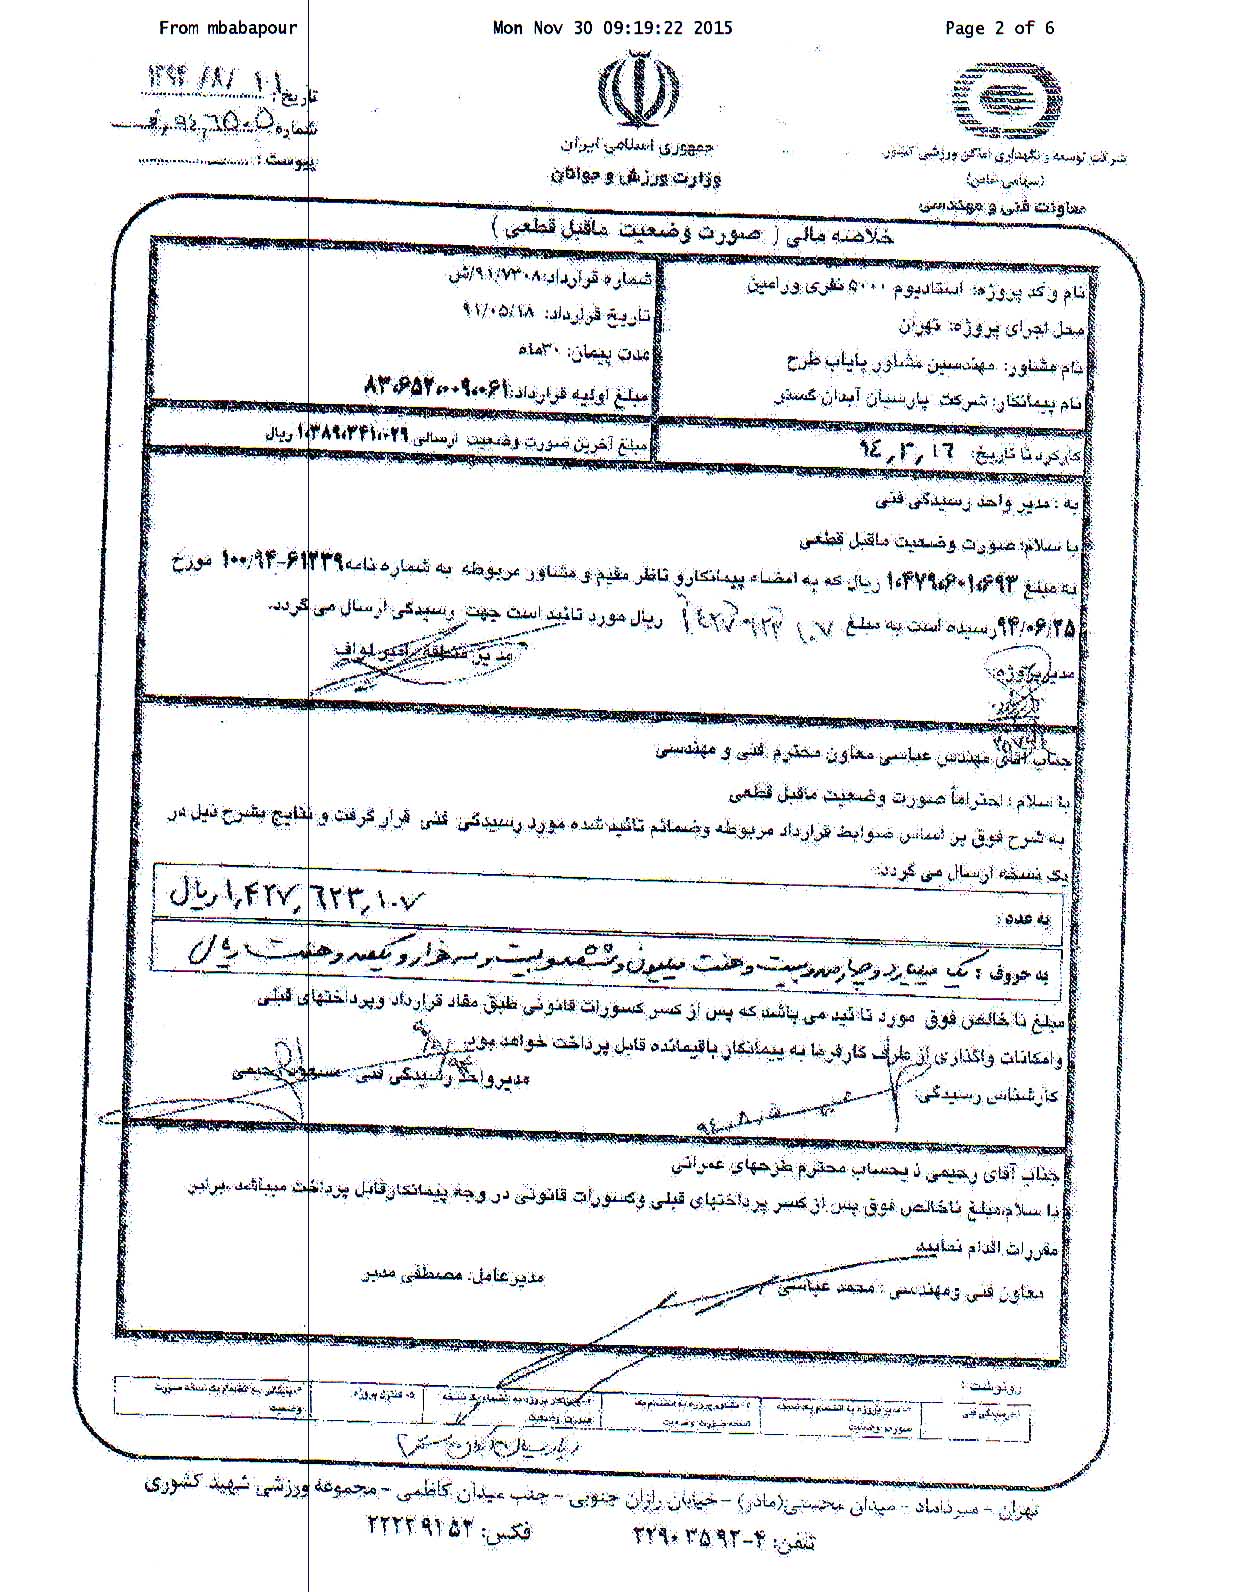 From mbabapour Mon Nov 30 09:19:22 2015 Page 2 of 6
تاریخ:
شماره
پیوست:
جمهوری اسلامی ایران
وزارت ورزش و جوانان
شرکت توسعه و نگهداری اماکن ورزشی کشور
(سهامی خاص)
معاونت فنی و مهندسی
خلاصه مالی ( صورت وضعیت ماقبل قطعی )
نام و کد پروژه: استادیوم ۵۰۰۰ نفری ورامین
محل اجرای پروژه: تهران
نام مشاور: مهندسین مشاور پایاب طرح
نام پیمانکار: شرکت پارسیان آبدان گستر
شماره قرارداد: ۹۱/۷۳۰۸/ش
تاریخ قرارداد: ۹۱/۰۵/۱۸
مدت پیمان: ۳۰ماه
مبلغ اولیه قرارداد: ۸۳،۶۵۲،۰۰۹،۰۶۱
کارکرد تا تاریخ: ۹۴,۳,۱۶
مبلغ آخرین صورت وضعیت ارسالی ۱،۳۸۹،۳۴۱،۰۲۹ ریال
به : مدیر واحد رسیدگی فنی
با سلام؛ صورت وضعیت ماقبل قطعی
به مبلغ ۱،۴۷۹،۶۰۱،۶۹۳ ریال که به امضاء پیمانکارو ناظر مقیم و مشاور مربوطه به شماره نامه ۶۱۲۳۹-۱۰۰/۹۴ مورخ
۹۴/۰۶/۲۵ رسیده است به مبلغ ۱۴۲۷ ۶۲۳ ۱۰۷ ریال مورد تائید است جهت رسیدگی ارسال می گردد.
مدیرپروژه:
مدیر منطقه
جناب آقای مهندس عباسی معاون محترم فنی و مهندسی
با سلام ؛ احتراماً صورت وضعیت ماقبل قطعی
به شرح فوق بر اساس ضوابط قرارداد مربوطه وضمائم تائید شده مورد رسیدگی فنی قرار گرفت و نتایج بشرح ذیل در
یک نسخه ارسال می گردد:
به عدد : ۱,۴۲۷,۶۲۳,۱۰۷ ریال
به حروف : یک میلیارد و چهارصد و بیست و هفت میلیون و ششصد و بیست و سه هزار و یکصد و هفت ریال
مبلغ نا خالص فوق مورد تا ئید می باشد که پس از کسر کسورات قانونی طبق مفاد قرارداد وپرداختهای قبلی
وامکانات واگذاری از طرف کارفرما به پیمانکار باقیمانده قابل پرداخت خواهد بود.
کارشناس رسیدگی:
مدیرواحد رسیدگی فنی : مسعود رحیمی
جناب آقای رحیمی ذ یحساب محترم طرحهای عمرانی
با سلام،مبلغ ناخالص فوق پس از کسر پرداختهای قبلی وکسورات قانونی در وجه پیمانکارقابل پرداخت میباشد .برابر
مقررات اقدام نمایید
معاون فنی ومهندسی : محمد عباسی
مدیرعامل: مصطفی مدبر
رونوشت :
تهران – میرداماد – میدان محسنی(مادر) – خیابان رازان جنوبی – جنب میدان کاظمی – مجموعه ورزشی شهید کشوری
تلفن: ۴-۲۲۹۰۳۵۹۲ فکس: ۲۲۲۲۹۱۵۳